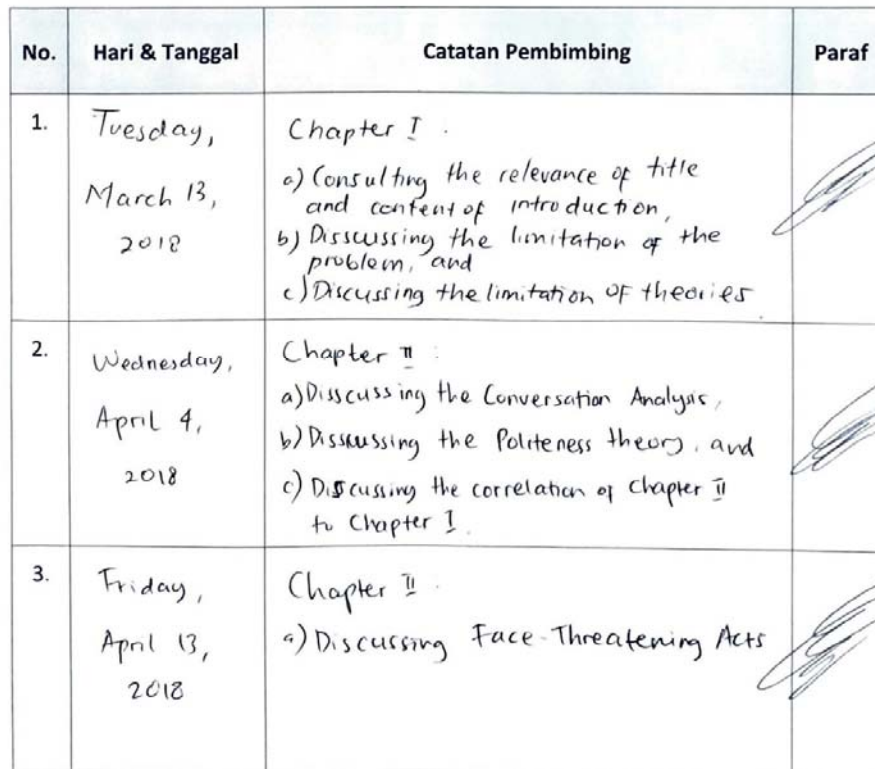 No. Hari & Tanggal Catatan Pembimbing Paraf
1. Tuesday,
March 13,
2018
Chapter I :
a) Consulting the relevance of title
and content of introduction,
b) Disscussing the limitation of the
problem, and
c) Discussing the limitation of theories
2. Wednesday,
April 4,
2018
Chapter II :
a) Disscussing the Conversation Analysis,
b) Disscussing the Politeness theory, and
c) Discussing the correlation of Chapter II
to Chapter I.
3. Friday,
April 13,
2018
Chapter II :
a) Discussing Face-Threatening Acts